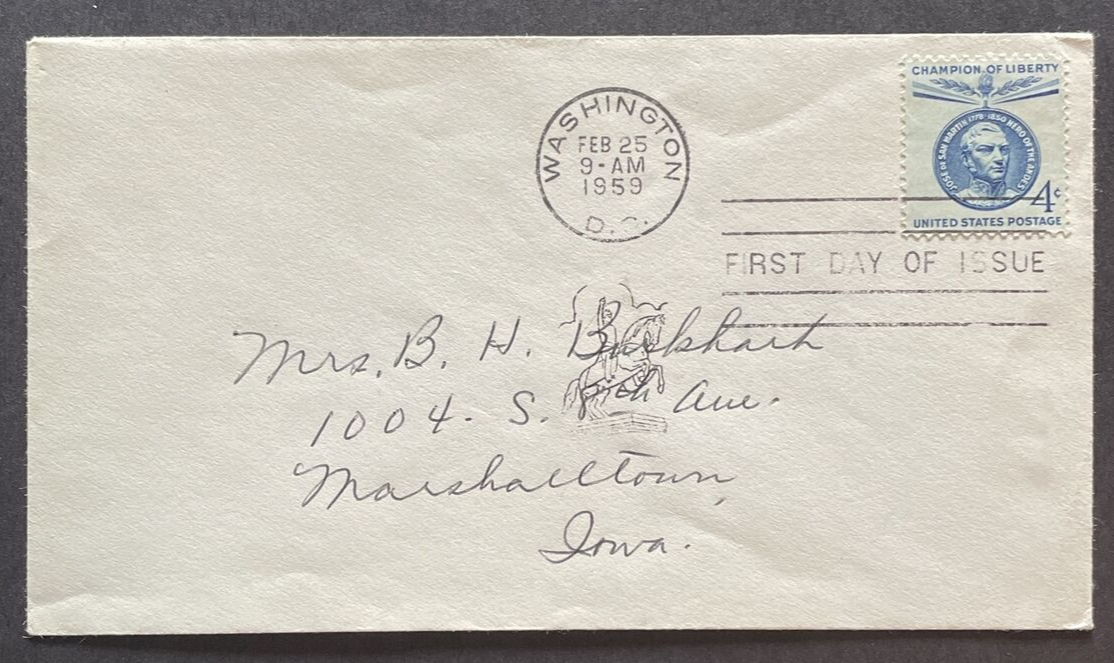 CHAMPION OF LIBERTY
JOSE DE SAN MARTIN 1778 1850 HERO OF THE ANDES
4c
UNITED STATES POSTAGE
WASHINGTON
FEB 25
9-AM
1959
D.C.
FIRST DAY OF ISSUE
Mrs. B. H. Burkhart
1004. S. Ave.
Marshalltown,
Iowa.